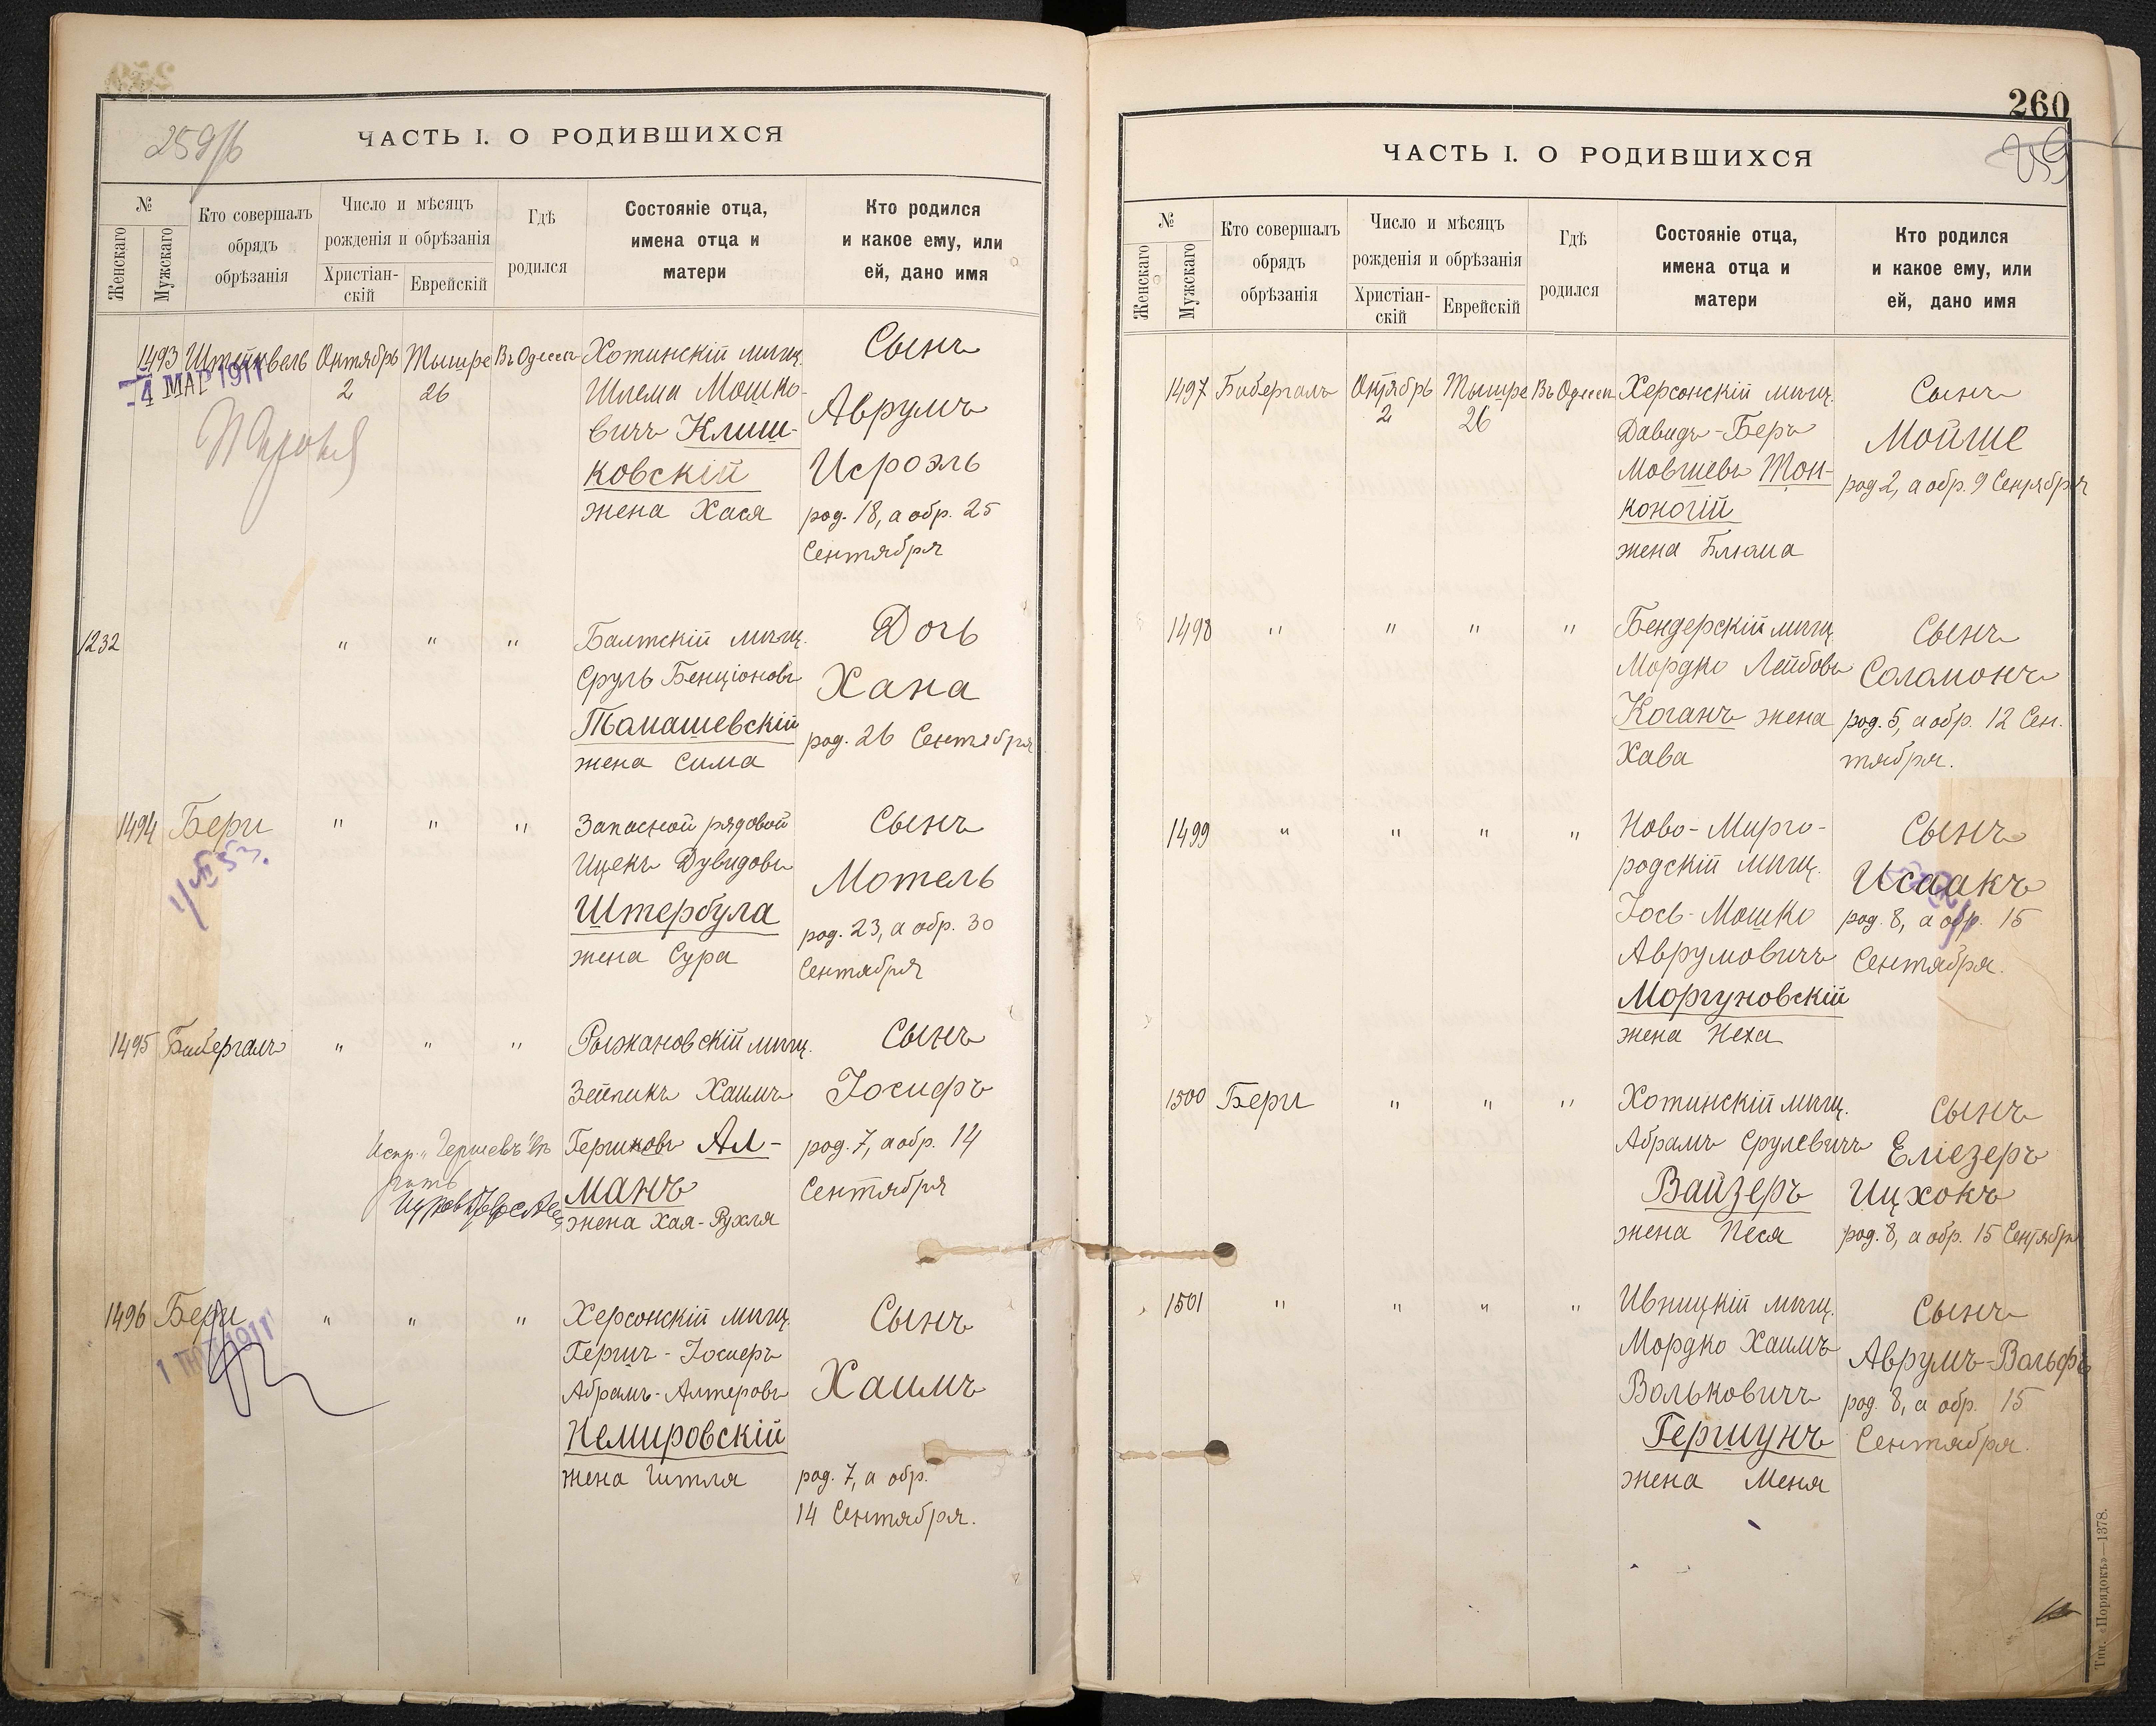 259/б
ЧАСТЬ I. О РОДИВШИХСЯ
№
Женскаго
Мужскаго
Кто совершалъ
обрядъ
обрѣзанія
Число и мѣсяцъ
рожденія и обрѣзанія
Христіан-
скій
Еврейскій
Гдѣ
родился
Состояніе отца,
имена отца и
матери
Кто родился
и какое ему, или
ей, дано имя
1493 Штейнвель Октябрь Тышре Въ Одессѣ Хотинскій мѣщ. Сынъ
2 26
-4 МАР 1911
Шлема Мошко-
вичъ Клиш-
ковскій
жена Хася
Аврумъ
Исроэль
род. 18, а обр. 25
Сентября
1232 " " " Балтскій мѣщ. Дочь
Сруль Бенціоновъ
Томашевскій
жена Сима
Хана
род. 26 Сентября
1494 Бери " " " Запасной рядовой Сынъ
Ицекъ Дувидовъ
Штербула
жена Сура
Мотель
род. 23, а обр. 30
Сентября
1495 Бибергалъ " " " Рыжановскій мѣщ. Сынъ
Зейликъ Хаимъ
Гершковъ Ал-
манъ
жена Хая-Рухля
Іосифъ
род. 7, а обр. 14
Сентября
1496 Бери " " " Херсонскій мѣщ. Сынъ
Гершъ-Іосиеръ
Абрамъ-Алтеровъ
Немировскій
жена Гитля
Хаимъ
род. 7, а обр.
14 Сентября.
260
259
ЧАСТЬ I. О РОДИВШИХСЯ
№
Женскаго
Мужскаго
Кто совершалъ
обрядъ
обрѣзанія
Число и мѣсяцъ
рожденія и обрѣзанія
Христіан-
скій
Еврейскій
Гдѣ
родился
Состояніе отца,
имена отца и
матери
Кто родился
и какое ему, или
ей, дано имя
1497 Бибергалъ Октябрь Тышре Въ Одессѣ Херсонскій мѣщ. Сынъ
2 26
Давидъ-Беръ
Мовшевъ Тон-
коногій
жена Блюма
Мойше
род 2, а обр. 9 Сентября
1498 " " " " Бендерскій мѣщ. Сынъ
Мордко Лейбовъ
Коганъ жена
Хава
Соломонъ
род. 5, а обр. 12 Сен.
тября.
1499 " " " " Ново-Мирго-
родскій мѣщ.
Іось-Мошко
Аврумовичъ
Моргуновскій
жена Неха
Сынъ
Исаакъ
род. 8, а обр. 15
Сентября.
1500 Бери " " " Хотинскій мѣщ. Сынъ
Абрамъ Срулевичъ
Вайзеръ
жена Песя
Еліезеръ
Ицхокъ
род. 8, а обр. 15 Сентября
1501 " " " " Ивницкій мѣщ. Сынъ
Мордко Хаимъ
Вольковичъ
Гершунъ
жена Меня
Аврумъ-Вольфъ
род. 8, а обр. 15
Сентября.
Тип. «Порядокъ»—1378.